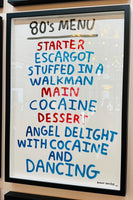 80's MENU
STARTER
ESCARGOT
STUFFED IN A
WALKMAN
MAIN
COCAINE
DESSERT
ANGEL DELIGHT
WITH COCAINE
AND
DANCING